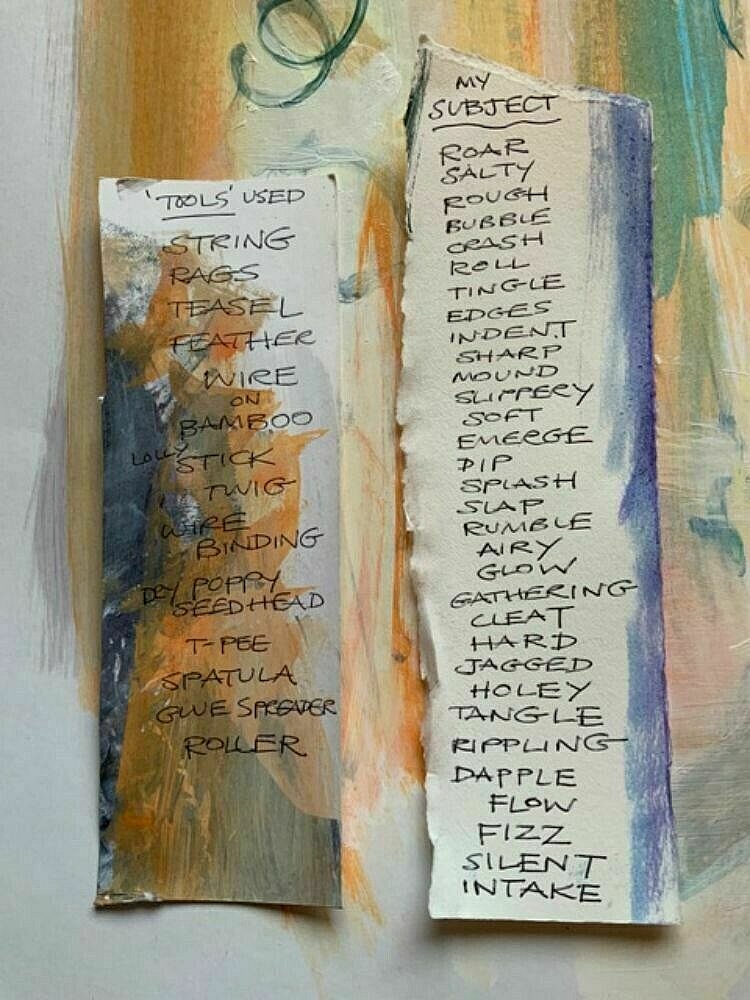 'TOOLS' USED
STRING
RAGS
TEASEL
FEATHER
WIRE
ON
BAMBOO
LOLLY STICK
TWIG
WIRE
BINDING
DRY POPPY
SEEDHEAD
T-PEE
SPATULA
GLUE SPREADER
ROLLER
MY
SUBJECT
ROAR
SALTY
ROUGH
BUBBLE
CRASH
ROLL
TINGLE
EDGES
INDENT
SHARP
MOUND
SLIPPERY
SOFT
EMERGE
DIP
SPLASH
SLAP
RUMBLE
AIRY
GLOW
GATHERING
CLEAT
HARD
JAGGED
HOLEY
TANGLE
RIPPLING
DAPPLE
FLOW
FIZZ
SILENT
INTAKE